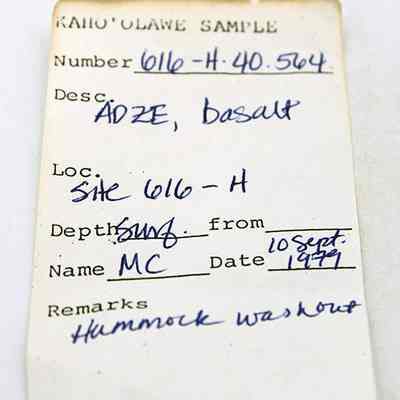 KAHO'OLAWE SAMPLE
Number 616-H.40.564
Desc.
ADZE, basalt
Loc.
Site 616-H
Depth Surf. from
10 Sept.
Name MC Date 1979
Remarks
Hummock washout